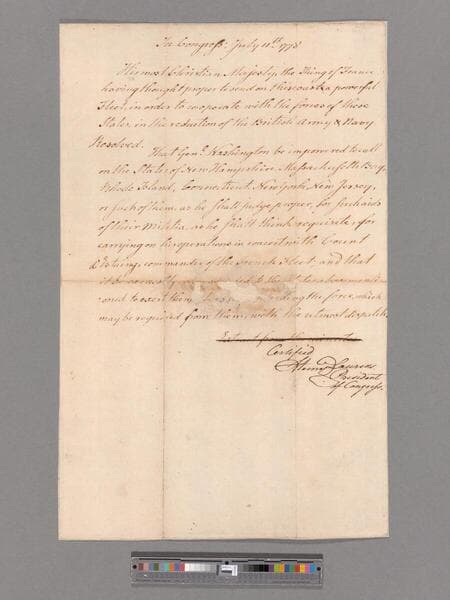 In Congress: July 11th. 1778
His most Christian Majesty, the King of France
having thought proper to send on this coast, a powerful
Fleet, in order to cooperate with the forces of these
States, in the reduction of the British Army & Navy
Resolved.
That Genl. Washington be impowered to call
on the States of New Hampshire, Massachusetts Bay,
Rhode Island, Connecticut, New York, New Jersey,
or such of them, as he shall judge proper, for such aids
of their Militia, as he shall think requisite, for
carrying on his operations in concert with Count
d'Estaing, commander of the French Fleet: and that
it be earnestly to the States above menti
oned to exert them the force, which
may be required from them, with the utmost dispatch
Extract from the minutes
Certified
Henry Laurens
President
of Congress.